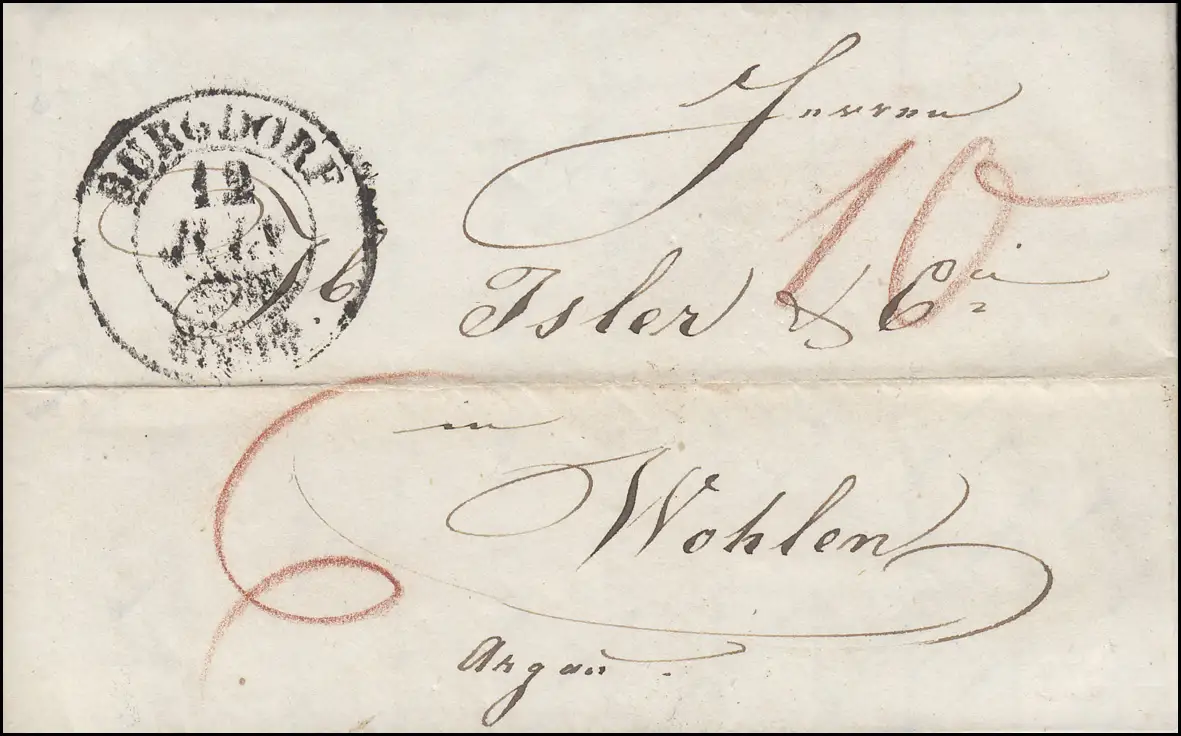 BURGDORF
12
Herren
10
Jb. Isler & Cie
in
Wohlen
Argau.